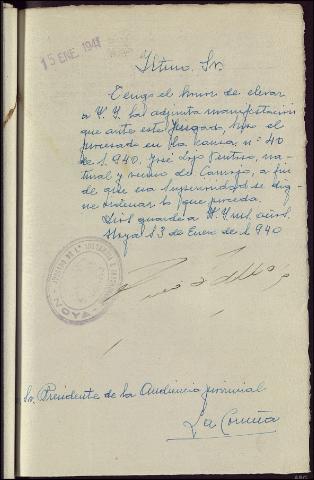 15 ENE. 1941
Iltmo. Sr.
Tengo el honor de elevar
a V. I. la adjunta manifestación
que ante este Juzgado, hizo el
procesado en la causa nº 40
de 1.940. José Lojo Ventoso, na-
tural y vecino de Carnota, a fin
de que esa Superioridad se dig-
ne ordenar lo que proceda.
Dios guarde a V. I. muchos años.
Noya 13 de Enero de 1.940
JUZGADO DE
NOYA
Sr. Presidente de la Audiencia provincial
La Coruña